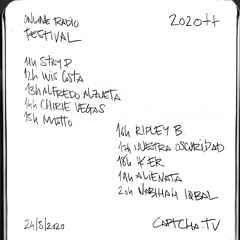 ONLINE RADIO
FESTIVAL
2020++
11h STRY P
12h WIS COSTA
13h ALFREDO ALZUETA
14h CHIRIE VEGAS
15h MUTTO
16h RIPLEY B.
17h NUESTRA OSCURIDAD
18h IKER
19h ALIENATA
20h NABIHAH IQBAL
24/5/2020
CAPTCHA.TV